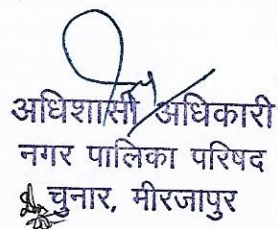 अधिशासी अधिकारी
नगर पालिका परिषद
चुनार, मीरजापुर